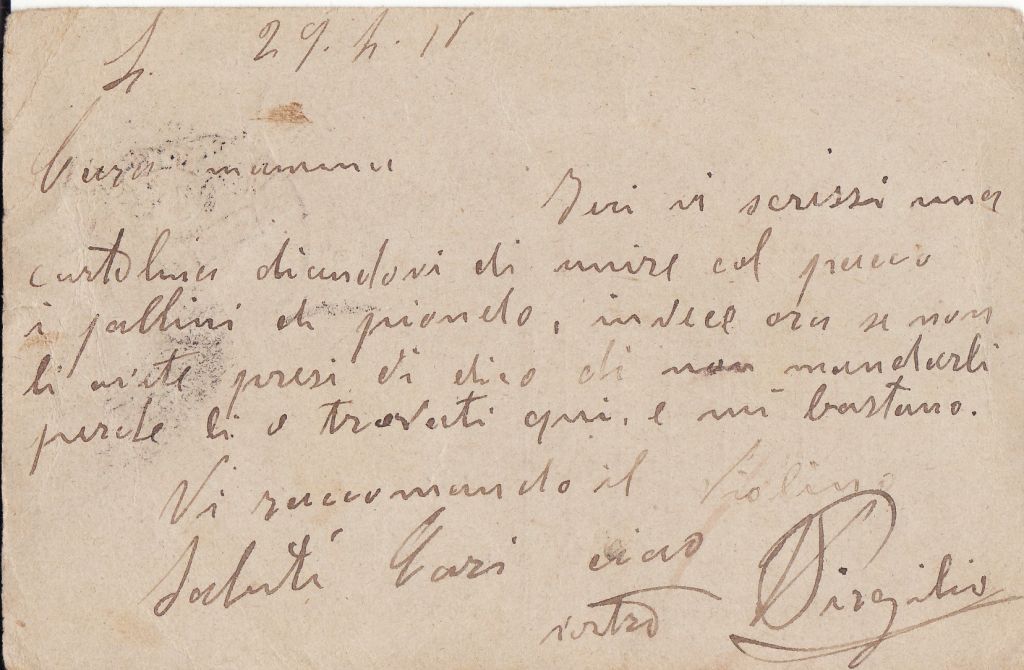 L. 29.4.18
Cara mamma
Ieri vi scrissi una
cartolina dicandovi di unire col pacco
i pallini di piondo, invece ora se non
li avete presi vi dico di non mandarli
perche li o trovati qui, e mi bastano.
Vi raccomando il Violino
Saluti Cari ciao
vostro Virgilio